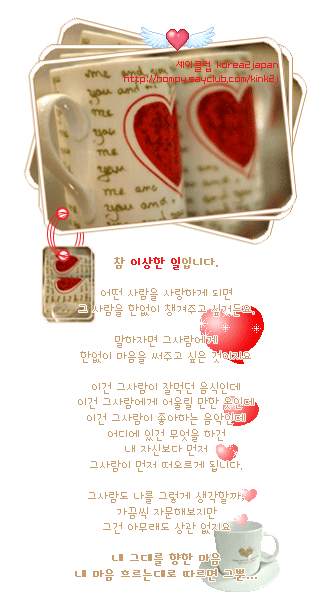 세이클럽 korea2japan
http://hompy.sayclub.com/kink2i
me and you
you and
you
you
me
me and
you and
참 이상한 일입니다.
어떤 사람을 사랑하게 되면
그 사람을 한없이 챙겨주고 싶거든요.
말하자면 그사람에게
한없이 마음을 써주고 싶은 것이지요
이건 그사람이 잘먹던 음식인데
이건 그사람에게 어울릴 만한 옷인데
이건 그사람이 좋아하는 음악인데
어디에 있건 무엇을 하건
내 자신보다 먼저
그사람이 먼저 떠오르게 됩니다.
그사람도 나를 그렇게 생각할까,
가끔씩 자문해보지만
그건 아무래도 상관 없지요
내 그대를 향한 마음
내 마음 흐르는대로 따르면 그뿐...